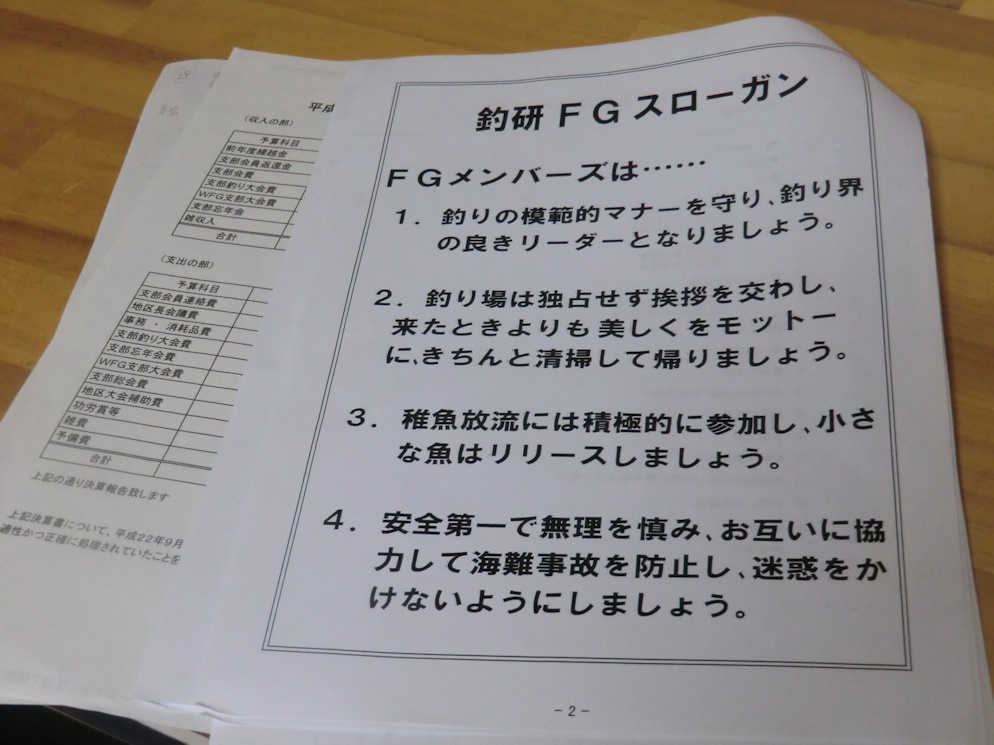 釣研FGスローガン
FGメンバーズは……
1. 釣りの模範的マナーを守り、釣り界
の良きリーダーとなりましょう。
2. 釣り場は独占せず挨拶を交わし、
来たときよりも美しくをモットー
に、きちんと清掃して帰りましょう。
3. 稚魚放流には積極的に参加し、小さ
な魚はリリースしましょう。
4. 安全第一で無理を慎み、お互いに協
力して海難事故を防止し、迷惑をか
けないようにしましょう。
-2-
平成
(収入の部)
予算科目
前年度繰越金
支部会員返還金
支部会費
支部釣り大会費
WFG支部大会費
支部忘年会
雑収入
合計
(支出の部)
予算科目
支部会員連絡費
地区長会議費
事務・消耗品費
支部釣り大会費
支部忘年会費
WFG支部大会費
支部総会費
地区大会補助費
功労賞等
雑費
予備費
合計
上記の通り決算報告致します
上記決算書について、平成22年9月
適性かつ正確に処理されていたことを